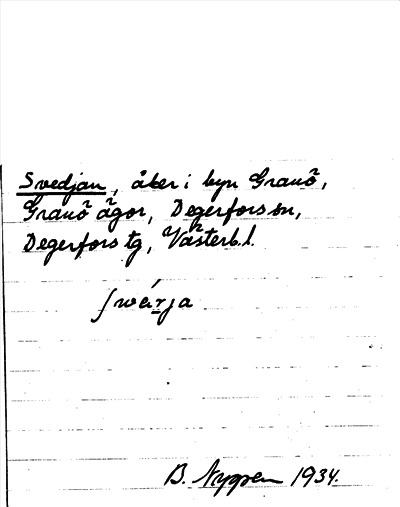 Svedjan, åker i byn Granö,
Granö ägor, Degerfors sn,
Degerfors tg, Västerb.l.
ʃwárja
B. Nygren 1934.